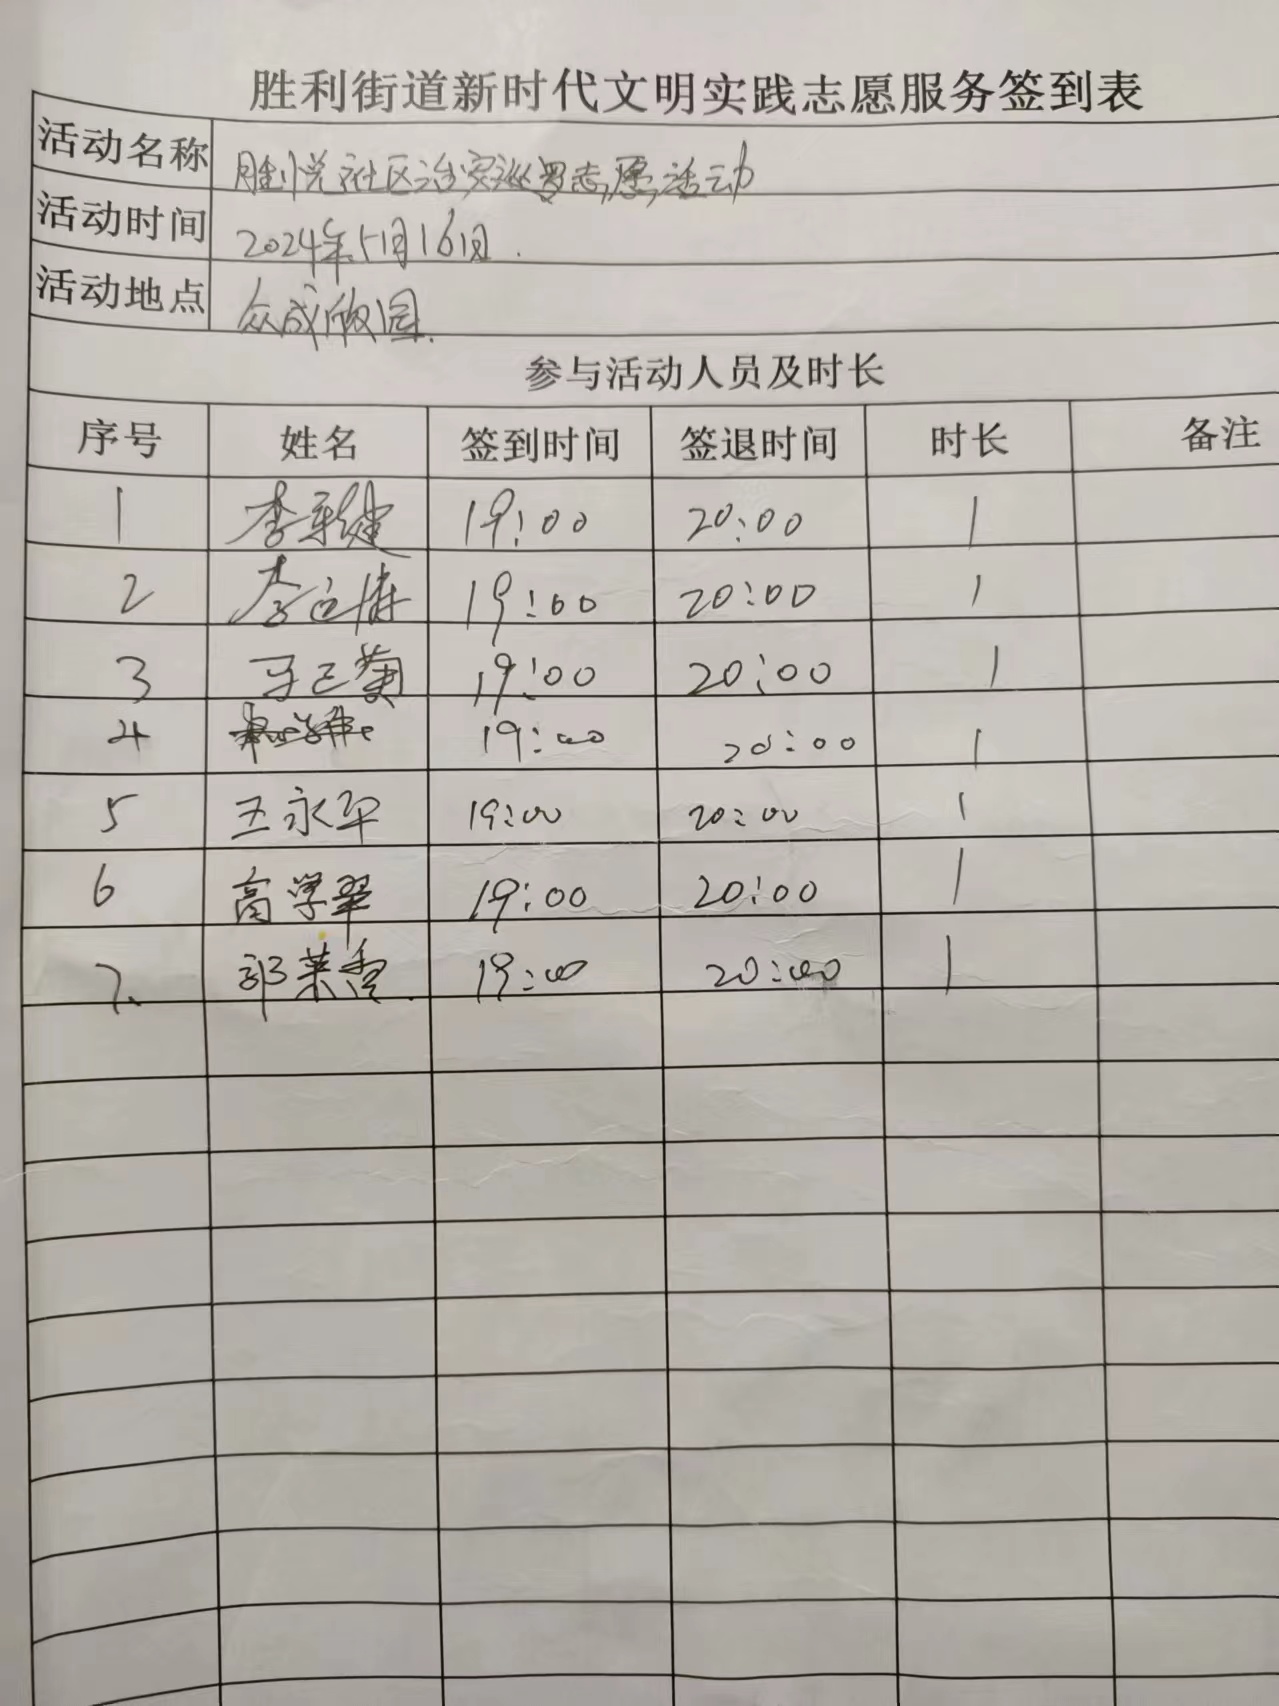 胜利街道新时代文明实践志愿服务签到表
活动名称 胜悦社区治安巡逻志愿活动
活动时间 2024年5月16日.
活动地点 众成
参与活动人员及时长
序号 姓名 签到时间 签退时间 时长 备注
1 李 健 19:00 20:00 1
2 李 19:00 20:00 1
3 19:00 20:00 1
4 19:00 20:00 1
5 王永平 19:00 20:00 1
6 高学翠 19:00 20:00 1
7. 郭英香. 19:00 20:00 1